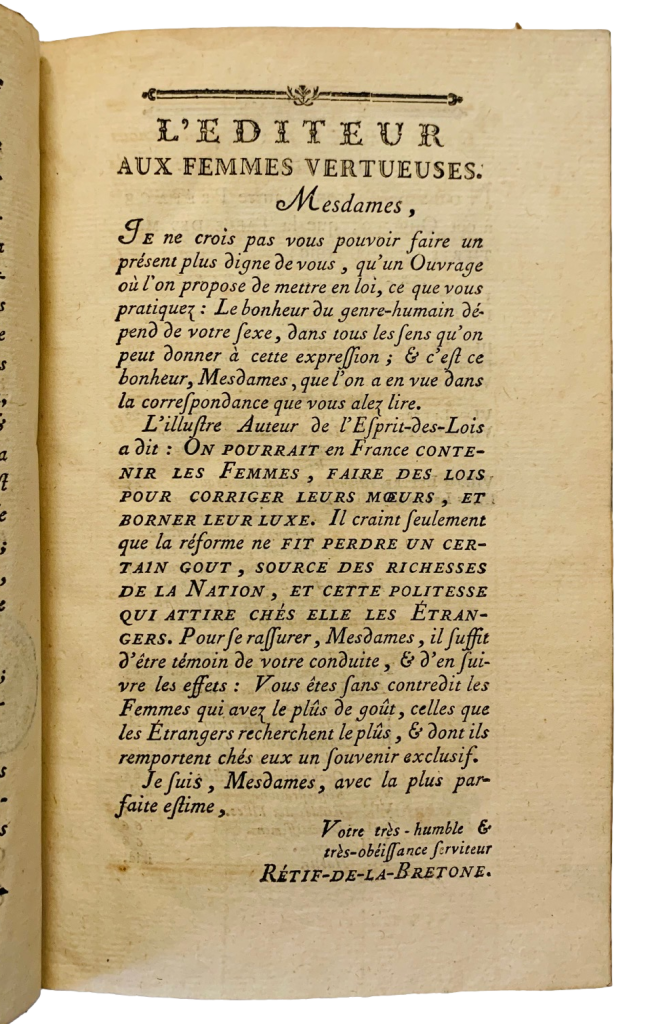 L'EDITEUR
AUX FEMMES VERTUEUSES.
Mesdames,
JE ne crois pas vous pouvoir faire un
présent plus digne de vous, qu'un Ouvrage
où l'on propose de mettre en loi, ce que vous
pratiquez : Le bonheur du genre-humain dé-
pend de votre ſexe, dans tous les ſens qu'on
peut donner à cette expreſſion ; & c'eſt ce
bonheur, Mesdames, que l'on a en vue dans
la correſpondance que vous alez lire.
L'illuſtre Auteur de l'Eſprit-des-Lois
a dit : ON POURRAIT en France CONTE-
NIR LES FEMMES, FAIRE DES LOIS
POUR CORRIGER LEURS MŒURS, ET
BORNER LEUR LUXE. Il craint ſeulement
que la réforme ne FIT PERDRE UN CER-
TAIN GOUT, SOURCE DES RICHESSES
DE LA NATION, ET CETTE POLITESSE
QUI ATTIRE CHÉS ELLE LES ÉTRAN-
GERS. Pour ſe raſſurer, Mesdames, il ſuffit
d'être témoin de votre conduite, & d'en ſui-
vre les effets : Vous êtes ſans contredit les
Femmes qui avez le plûs de goût, celles que
les Étrangers recherchent le plûs, & dont ils
remportent chés eux un ſouvenir excluſif.
Je ſuis, Mesdames, avec la plus par-
faite eſtime,
Votre très-humble &
très-obéiſſance ſerviteur
RÉTIF-DE-LA-BRETONE.